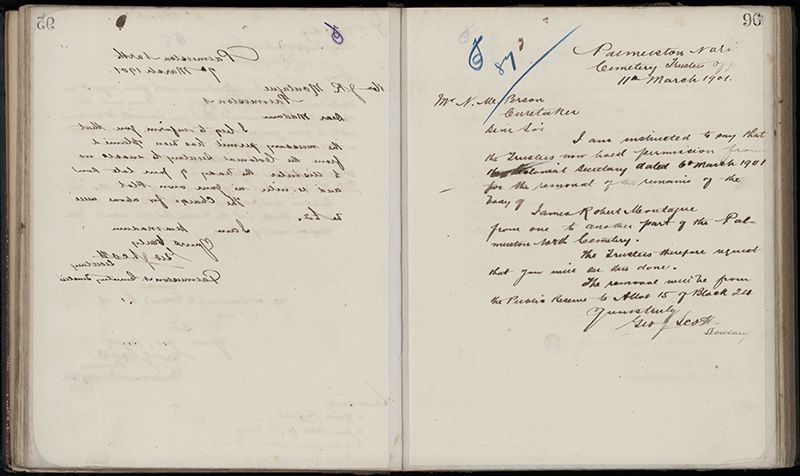 95
Palmerston North
7th March 1901.
Mrs J. R. Montague
Palmerston N
Dear Madam
I beg to inform you that
the necessary permit has been obtained
from the Colonial Secretary to enable us
to disinter the body of your late
and re inter in your own
The Charge for above will
be £2.
I am
Dear madam
Yours truly
Geo J Scott
Secretary
Palmerston N Cemetery Trustees
96
87
Palmerston Nor
Cemetery Trustees Off
11th March 1901.
Mr N. McPerson
Caretaker
Dear Sir
I am instructed to say that
the Trustees now hold permission from
the Colonial Secretary dated 6th March 1901
for the removal of the remains of the
body of
James Robert Montague
from one to another part of the Pal-
merston North Cemetery.
The Trustees therefore request
that you will see this done.
The removal will be from
the Public Reserve to Allot 15 of Block 24
Yours truly
Geo J Scott.
Secretary